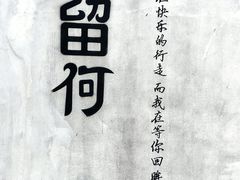 留何
快乐的行走 而我在等你回眸